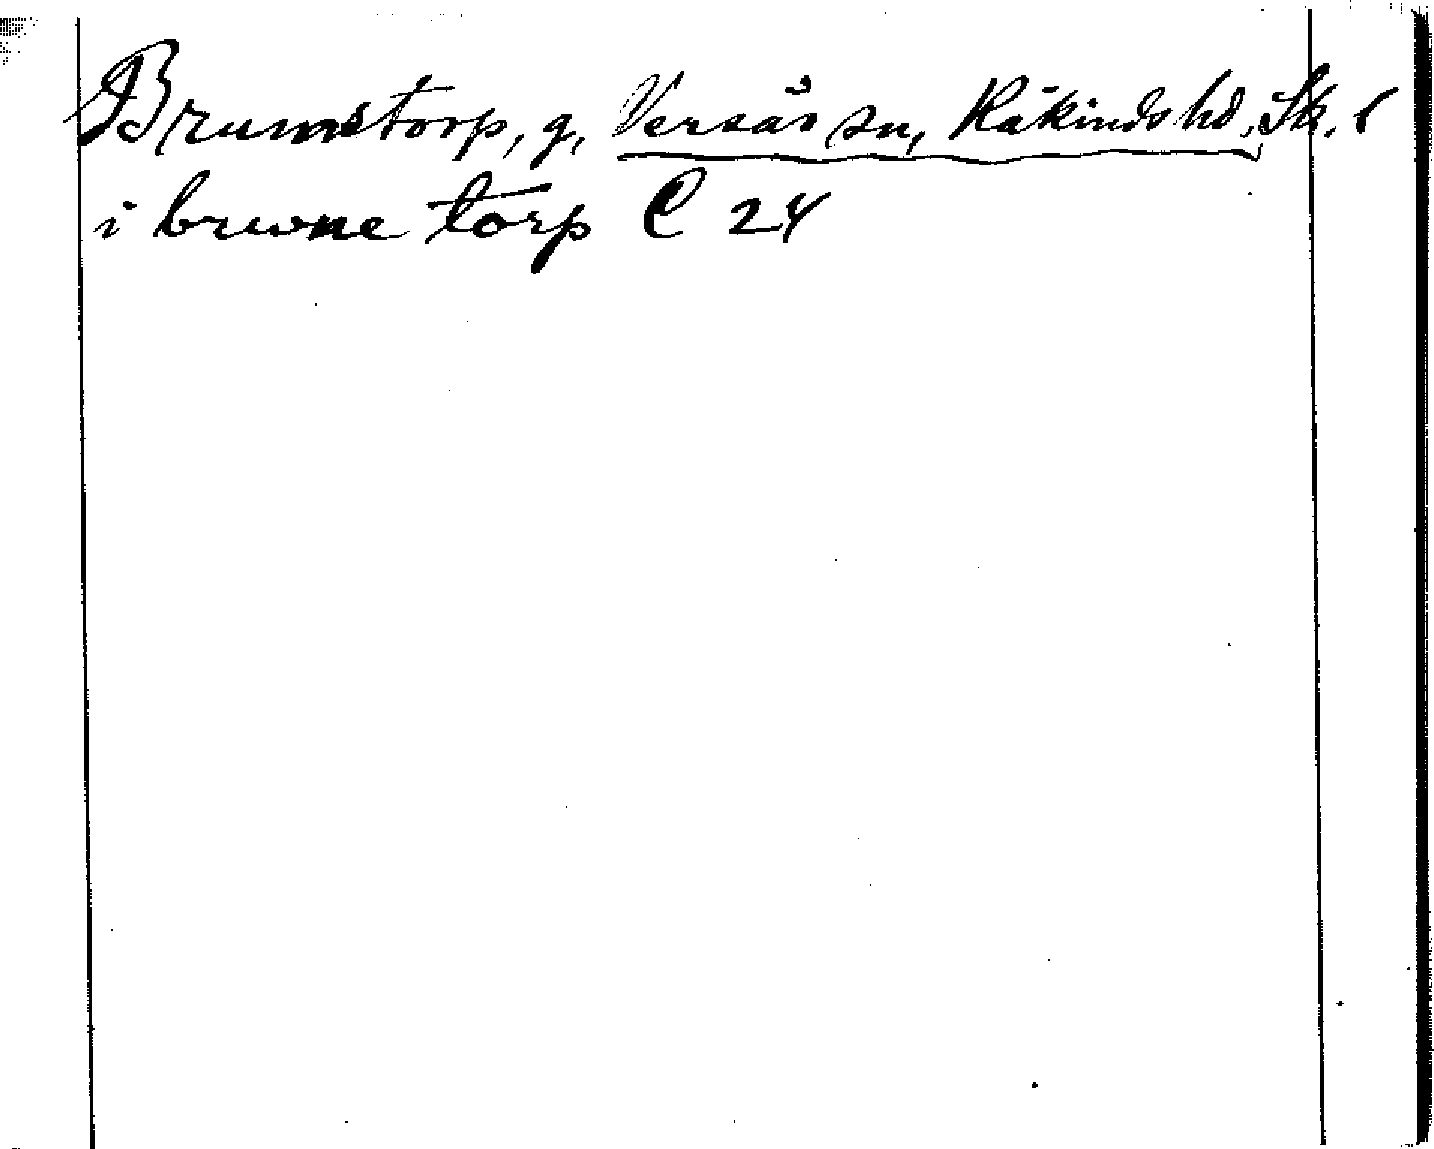 Brumstorp, g, Versås sn, Kåkinds hd, Sk. l
i brwne torp C 24